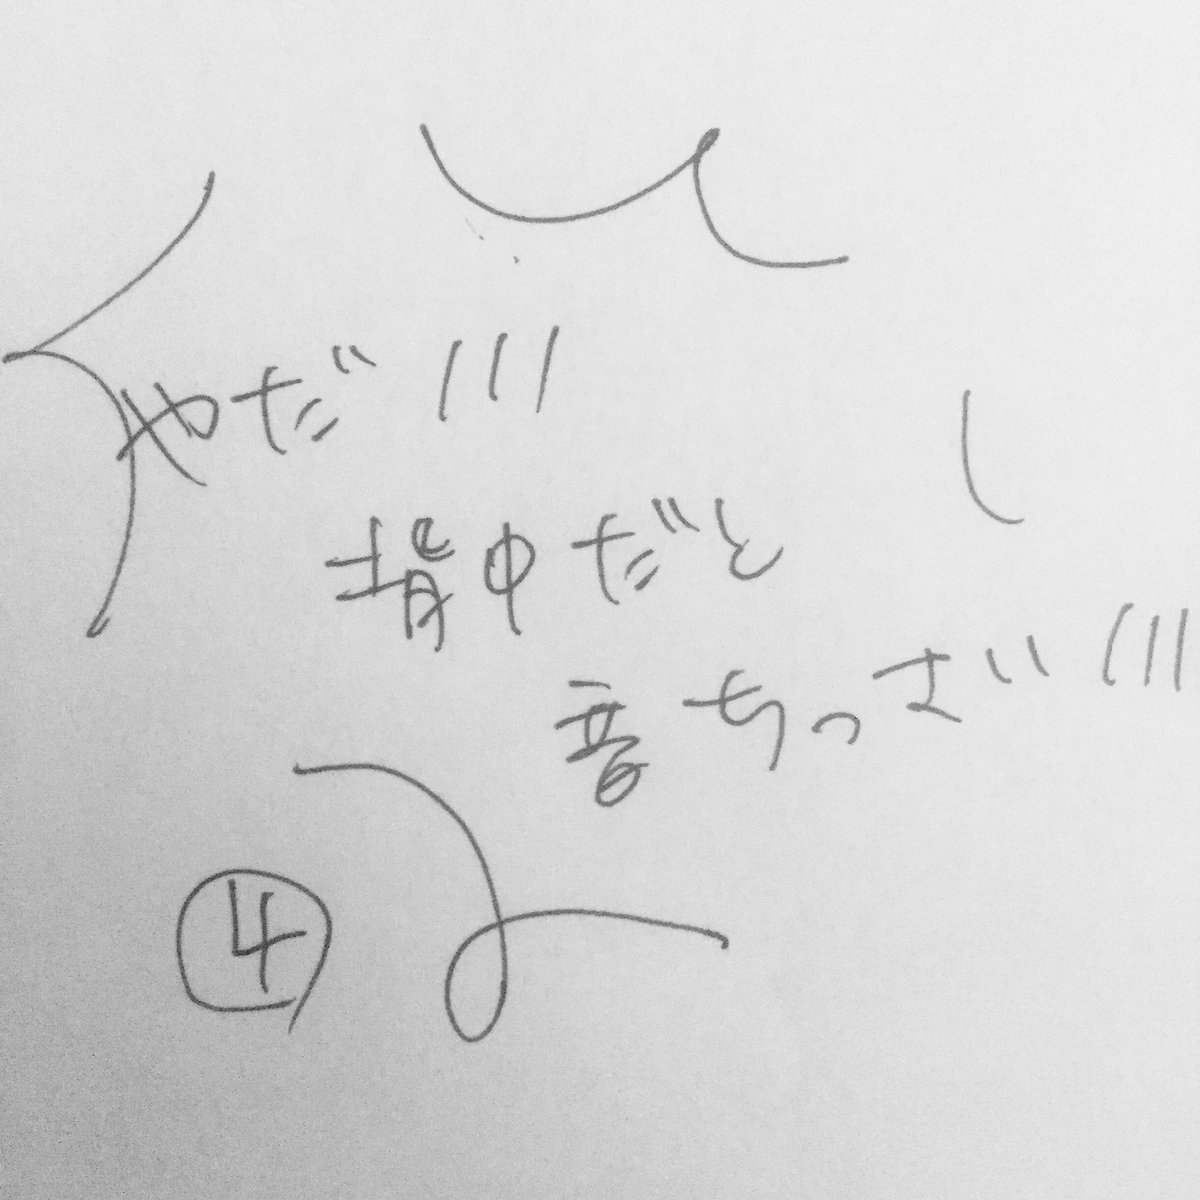 やだ!!!
背中だと
音ちっさい!!!
④